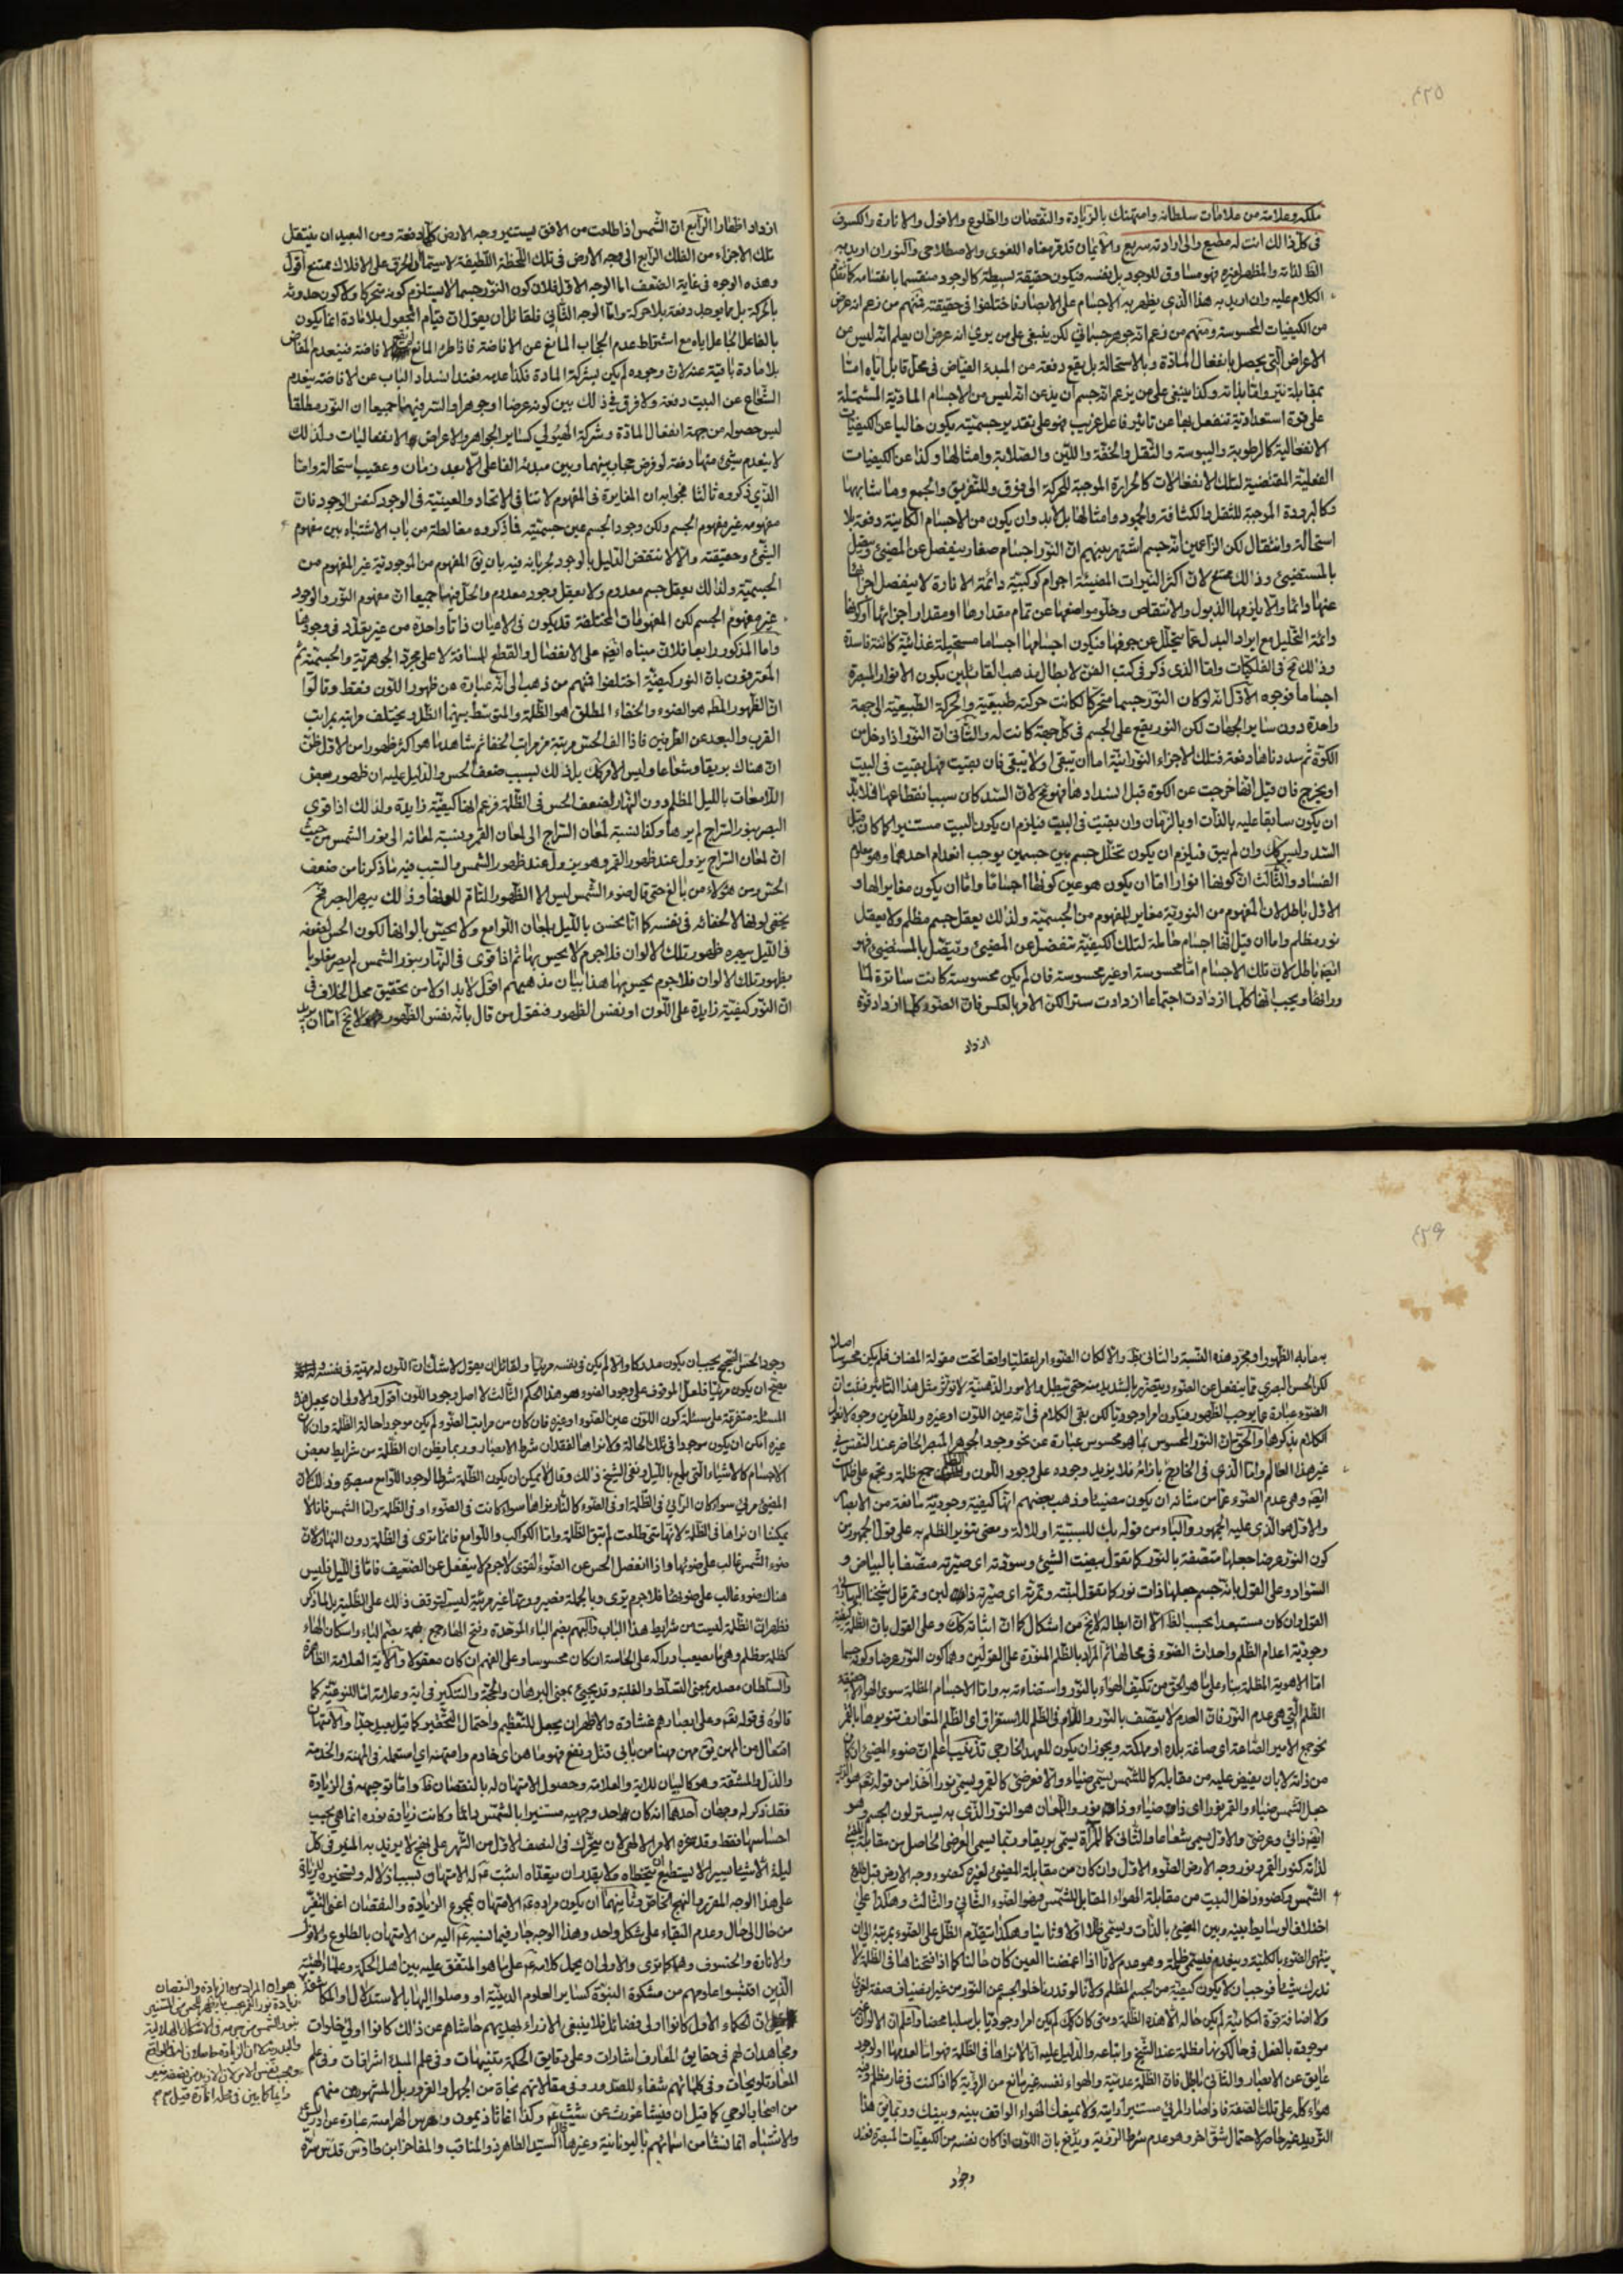 ٤٢٥
ملكه وعلامة من علامات سلطانه وامتهنك بالزيادة والنقصان والطلوع والافول والانارة والكسوف
فى كل ذلك انت له مطيع والى ارادته سريع والايمان قدمر معناه اللغوى والاصطلاحى والنور ان اريد به
الظاهر لذاته والمظهر لغيره فهو مساوق للوجود بل نفسه فيكون حقيقة بسيطة كالوجود منقسما بانقسامه كما تقدم
الكلام عليه وان اريد به هذا الذى يظهر به الاجسام على الابصار فاختلفوا فى حقيقته فمنهم من زعم انه عرض
من الكيفيات المحسوسة ومنهم من زعم انه جوهر جسمانى لكن ينبغى على من يرى انه عرض ان يعلم انه ليس من
الاعراض التى يحصل بانفعال المادة وبالاستحالة بل يقع دفعة من المبدء الفياض فى محل قابل اياه امتا
بمقابلة نير واما بذاته وكذا ينبغى على من يزعم انه جسم ان يذعن انه ليس من الاجسام المادية المشتملة
على قوة استعدادية تنفعل بها عن تاثير فاعل غريب فهو على تقدير جسميته يكون خاليا عن الكيفيات
الانفعالية كالرطوبة واليبوسة والثقل والخفة واللين والصلابة وامثالها وكذا عن الكيفيات
الفعلية المقتضية لتلك الانفعالات كالحرارة الموجبة للحركة الى فوق وللتفريق والجمع وما شابهها
وكالبرودة الموجبة للثقل والكثافة والجمود وامثالها بل لابد وان يكون من الاجسام الكاينة دفعة بلا
استحالة وانتقال لكن الزاعمين انه جسم اشتهر بينهم ان النور اجسام صغار ينفصل عن المضيئ ويتصل
بالمستضيئ وذلك ممتنع لان اكثر النيرات المضيئة اجرام كوكبية دائمة الانارة لا ينفصل اجزائها
عنها دائما والا يلزمها الذبول والانتقاص وخلو مواضعها عن تمام مقدارها او مقدار اجزائها او كونها
دائمة التحليل مع ايراد البدل عما يتحلل عن جرمها فيكون اجسامها اجساما مستحيلة غذائية كائنة فاسدة
وذلك مح فى الفلكيات واما الذى ذكر فى كتب الفن لابطال مذهب القائلين بكون الانوار المبصرة
اجساما فوجوه الاول انه لو كان النور جسما متحركا لكانت حركته طبيعية والحركة الطبيعية الى جهة
واحدة دون ساير الجهات لكن النور يقع على الجسم فى كل جهة كانت له والثانى ان النور اذا دخل من
الكوة ثم سددناها دفعة فتلك الاجزاء النورانية اما ان يبقى او لا يبقى فان بقيت فهل بقيت فى البيت
او يخرج فان قيل انها خرجت عن الكوة قبل انسدادها فهو مح لان السد كان سببا لانقطاعها فلابد
ان يكون سابقا عليه بالذات او بالزمان وان بقيت فى البيت فيلزم ان يكون البيت مستنيرا كما كان قبل
السد وليس كك وان لم يبق فيلزم ان يكون تخلل جسم بين جسمين يوجب انعدام احدهما وهو معلوم
الفساد والثالث ان كونها انوارا اما ان يكون هو عين كونها اجساما واما ان يكون مغايرا لها و
الاول باطل لان المفهوم من النورية مغاير للمفهوم من الجسمية ولذلك يعقل جسم مظلم ولا يعقل
نور مظلم واما ان قيل انها اجسام حاملة لتلك الكيفية تنفصل عن المضيئ وتتصل بالمستضيئ فهو
ايضا باطل لان تلك الاجسام اما محسوسة او غير محسوسة فان لم يكن محسوسة كانت ساترة لما
وراءها ويجب انها كلما ازدادت اجتماعا ازدادت سترا لكن الامر بالعكس فان الضوء كلما ازداد قوة
ازداد
ازداد اظهارا الرابع ان الشمس اذا طلعت من الافق يستنير وجه الارض كله دفعة ومن البعيد ان ينتقل
تلك الاجزاء من الفلك الرابع الى وجه الارض فى تلك اللحظة اللطيفة لا سيما والخرق على الافلاك ممتنع اقول
وهذه الوجوه فى غاية الضعف اما الوجه الاول فلان كون النور جسما لا يستلزم كونه متحركا ولا كون حدوثه
بالحركة بل مما يوجد دفعة بلا حركة واما الوجه الثانى فلقائل ان يقول ان قيام المجعول بلا مادة انما يكون
بالفاعل الجاعل اياه مع اشتراط عدم الحجاب المانع عن الافاضة فاذا طرء المانع لم يقع الافاضة فينعدم المفاض
بلا مادة باقية عنه لان وجوده لم يكن بشركة المادة فكذا عدمه فعند انسداد الباب عن الافاضة ينعدم
الشعاع عن البيت دفعة ولا فرق فى ذلك بين كونه عرضا او جوهرا والسر فيهما جميعا ان النور مطلقا
ليس حصوله من جهة انفعال المادة وشركة الهيولى كساير الجواهر والاعراض الانفعاليات ولذلك
لا ينعدم شيئ منها دفعة لو فرض حجاب بينهما وبين مبدئه الفاعلى الا بعد زمان وعقيب استحالة واما
الذى ذكروه ثالثا فجوابه ان المغايرة فى المفهوم لا تنافى الاتحاد والعينية فى الوجود كنفس الوجود فان
مفهومه غير مفهوم الجسم ولكن وجود الجسم عين جسميته فما ذكروه مغالطة من باب الاشتباه بين مفهوم
الشيئ وحقيقته والا لانتقض الدليل بالوجود لجريانه فيه بان يق المفهوم من الموجودية غير المفهوم من
الجسمية ولذلك يعقل جسم معدوم ولا يعقل وجود معدوم والحل فيهما جميعا ان مفهوم النور والوجود
غير مفهوم الجسم لكن المفهومات المختلفة قد يكون فى الاعيان ذاتا واحدة من غير تعدد فى وجودها
واما المذكور رابعا فلان مبناه ايضا على الانفصال والقطع للمسافة لا على مجرد الجوهرية والجسمية ثم
المعترفون بان النور كيفية اختلفوا فمنهم من ذهب الى انه عبارة عن ظهور اللون فقط وقالوا
ان الظهور المطلق هو الضوء والخفاء المطلق هو الظلمة والمتوسط بينهما الظل ويختلف مراتبه بمراتب
القرب والبعد عن الطرفين فاذا الف الحس مرتبة من مراتب الخفا ثم شاهد ما هو اكثر ظهورا من الاول ظن
ان هناك بريقا وشعاعا وليس الامر كك بل ذلك بسبب ضعف الحس والدليل عليه ان ظهور بعض
اللامعات بالليل المظلم دون النهار لضعف الحس فى الظلمة فزعم انها كيفية زايدة ولذلك اذا قوى
البصر بنور السراج لم يرها وكذا نسبة لمعان السراج الى لمعان القمر ونسبة لمعانه الى نور الشمس من حيث
ان لمعان السراج يزول عند ظهور القمر وهو يزول عند ظهور الشمس والسبب فيه ما ذكرنا من ضعف
الحس ومن هؤلاء من بالغ حتى قال ضوء الشمس ليس الا الظهور التام للونها وذلك يبهر البصر فح
يخفى لونها لا لخفائه فى نفسه كما انا نحس بالليل بلمعان اللوامع ولا نحس بالوانها لكون الحس لضعفه
فى الليل يبهره ظهور تلك الالوان فلا جرم لا يحس بها ثم اذا قوى فى النهار بنور الشمس لم يصر مغلوبا
بظهور تلك الالوان فلا جرم يحس بها هذا بيان مذهبهم اقول لابد اولا من تحقيق محل الخلاف فى
ان النور كيفية زايدة على اللون او نفس الظهور فنقول من قال بانه نفس الظهور لا يخ اما ان يريد
٤٢٦
به ما به الظهور او مجرد هذه النسبة والثانى بط والا لكان الضوء امرا عقليا واقعا تحت مقولة المضاف فلم يكن محسوسا اصلا
لكن الحس البصرى مما ينفعل عن الضوء ويتضرر بالشديد منه حتى يبطل والامور الذهنية لا تؤثر مثل هذا التاثير فثبت ان
الضوء عبارة عما يوجب الظهور فيكون امرا وجوديا لكن بقى الكلام فى انه عين اللون او غيره وللطرفين وجوه لا نطول
الكلام بذكرها والحق ان النور المحسوس بما هو محسوس عبارة عن نحو وجود الجوهر المبصر الحاضر عند النفس فى
غير هذا العالم واما الذى فى الخارج بازائه فلا يزيد وجوده على وجود اللون والظلم جمع ظلمة ويجمع على ظلمات
ايضا وهى عدم الضوء عما من شانه ان يكون مضيئا وذهب بعضهم انها كيفية وجودية مانعة من الابصار
والاول هو الذى عليه الجمهور والباء من قوله بك للسببية او للالة ومعنى تنوير الظلم به على قول الجمهور من
كون النور عرضا جعلها متصفة بالنور كما تقول بيضت الشيئ وسودته اى صيرته متصفا بالبياض و
السواد وعلى القول بانه جسم جعلها ذات نور كما تقول لبنته وتمرته اى صيرته ذا لبن وتمر قال شيخنا البهائى
القول وان كان مستبعدا بحسب الظاهر الا ان ابطاله لا يخ من اشكال كما ان اثباته كك وعلى القول بان الظلمة كيفية
وجودية اعدام الظلم واحداث الضوء فى محالها ثم المراد بالظلم المنورة على القولين وهما كون النور عرضا وكونه جسما
اما الاهوية المظلمة بناء على ما هو الحق من تكيف الهواء بالنور واستضاءته به واما الاجسام المظلمة سوى الهواء لا حقيقة
الظلم التى هى عدم النور فان العدم لا يتصف بالنور واللام فى الظلم للاستغراق اى الظلم المتعارف تنويرها بالقمر
نحو جمع الامير الصاغة اى صاغة بلده او مملكته ويجوز ان يكون للعهد الخارجى تذنيب اعلم ان ضوء المضيئ ان كان
من ذاته لا بان يفيض عليه من مقابله كما للشمس يسمى ضياء والا فعرضى كما للقمر ويسمى نورا اخذا من قوله تعم هو الذى
جعل الشمس ضياء والقمر نورا اى ذات ضياء وذا نور واللمعان هو النور الذى به يستر لون الجسم وهو
ايضا ذاتى وعرضى والاول يسمى شعاعا والثانى كما للمرآة يسمى بريقا وربما يسمى العرضى الحاصل من مقابلة المضيئ
لذاته كنور القمر ونور وجه الارض الضوء الاول وان كان من مقابلة المضيئ لغيره كضوء وجه الارض قبل طلوع
الشمس وكضوء داخل البيت من مقابلة الهواء المقابل للشمس فهو الضوء الثانى والثالث وهكذا على
اختلاف الوسايط بينه وبين المضيئ بالذات ويسمى ظلا اولا وثانيا وهكذا
ينتهى الضوء بالكلية وينعدم فليسمى ظلمة وهو عدم لانا اذا اغمضنا العين كان حالنا كما اذا فتحناها فى الظلمة لا
ندرك شيئا فوجب ان لا يكون كيفية من الجسم المظلم ولانا لو قدرنا خلو الجسم عن النور من غير انضياف صفة اخرى
ولا اضافة قوة امكانية لم يكن حاله الا هذه الظلمة ومتى كان كك لم يكن امرا وجوديا بل سلبا محضا واعلم ان الالوان غير
موجودة بالفعل فى حال كونها مظلمة عند الشيخ واتباعه والدليل عليه انا لا نراها فى الظلمة فهو اما لعدمها او لوجود
عايق عن الابصار والثانى باطل فان الظلمة عدمية والهواء نفسه غير مانع من الرؤية كما اذا كنت فى غار مظلم وفيه
هواء كله على تلك الصفة فاذا صار المرئى مستنيرا رايته ولا يمنعك الهواء الواقف بينه وبينك وربما يق هذا
الترديد غير حاصر لاحتمال شق اخر وهو عدم شرط الرؤية ويدفع بان اللون اذا كان نفسه من الكيفيات المبصرة فعند
وجود
وجود الحس الصحيح يجب ان يكون مدركا والا لم يكن فى نفسه مرئيا ولقائل ان يقول لا شك ان اللون له مهية فى نفسه وله
يصح ان يكون مرئيا فلعل الموقوف على وجود الضوء هو هذا الحكم الثالث لا اصل وجود اللون اقول والاولى ان يجعل هذه
المسئلة متفرعة على مسئلة كون اللون عين الضوء او غيره فان كان من مراتب الضوء لم يكن موجودا حالة الظلمة وان كان
غيره امكن ان يكون موجودا فى تلك الحالة ولا نراها لفقدان شرط الابصار وربما يظن ان الظلمة من شرايط بعض
الاجسام كالاشياء التى تلمع بالليل ونفى الشيخ ذلك وقال لا يمكن ان يكون الظلمة شرطا لوجود اللوامع مبصرة وذلك لان
المضيئ مرئى سواء كان الرائى فى الظلمة او فى الضوء كالنار نراها سواء كانت فى الضوء او فى الظلمة واما الشمس فانا لا
يمكننا ان نراها فى الظلمة لانها متى طلعت لم تبق الظلمة واما الكواكب واللوامع فانما ترى فى الظلمة دون النهار لان
ضوء الشمس غالب على ضوئها واذا انفعل الحس عن الضوء القوى لا جرم لا ينفعل عن الضعيف فاما فى الليل فليس
هناك ضوء غالب على ضوئها فلا جرم ترى وبالجملة فصيرورتها غير مرئية ليس لتوقف ذلك على الظلمة بل لما ذكر
فظهر ان الظلمة ليست من شرايط هذا الباب والبهم بضم الباء الموحدة وفتح الهاء جمع بهمة بضم الباء واسكان الهاء
كظلمة وظلم وهى ما يصعب ادراكه على الحاسة ان كان محسوسا وعلى الفهم ان كان معقولا والآية العلامة الظاهرة
والسلطان مصدر بمعنى التسلط والغلبة وقد يجيئ بمعنى البرهان والحجة والتنكير فى اية وعلامة اما للنوعية كما
قالوه فى قوله تعم وعلى ابصارهم غشاوة والاظهر ان يجعل للتعظيم واحتمال التحقير كما قيل بعيد جدا والامتهان
افتعال من المهن يق مهن مهنا من بابى قتل ونفع فهو ماهن اى خادم وامتهنه اى استعمله فى المهنة والخدمة
والذل والمشقة وهو كالبيان للاية والعلامة وحصول الامتهان له بالنقصان ظ واما توجيهه فى الزيادة
فقد ذكر له وجهان احدهما انه كان احد وجهيه مستنيرا بالشمس دائما وكانت زيادة نوره انما هى بحسب
احساسنا فقط وقد سخره الامر الالهى لان يتحرك فى النصف الاول من الشهر على نهج لا يزيد به المنير فى كل
ليلة الا شيئا يسيرا لا يستطيع ان يتخطاه ولا يقدر ان يتعداه اثبت عم له الامتهان بسبب اذلاله وتسخيره للزيادة
على هذا الوجه المقرر بالنهج الخاص وثانيهما ان يكون مراده عم الامتهان بمجموع الزيادة والنقصان اعنى التغير
من حال الى حال وعدم البقاء على شكل واحد وهذا الوجه جار فيما نسبه عم اليه من الامتهان بالطلوع والافول
والانارة والخسوف وهما كما ترى والاولى ان يحمل كلامه عم على ما هو المتفق عليه بين اهل الحكمة وعلماء الهيئة
الذين اقتبسوا علومهم من مشكوة النبوة كساير العلوم الدينية او وصلوا اليها بالاستدلال والمكاشفة
فان الحكماء الاول كانوا اولى فضائل فلا ينبغى الازراء لمثلهم حاشاهم عن ذلك كانوا اولى خلوات
ومجاهدات لهم فى حقايق المعارف اشارات وعلى دقايق الحكمة تنبيهات وفى علم المبدء اشراقات وفى علم
المعاد تلويحات وفى كلماتهم شفاء للصدور وفى مقلاتهم نجاة من الجهل والغرور بل المشهورين منهم
من اصحاب الوحى كما قيل ان فيثاغورث عن شيث عم وكذا اغاثاذيمون وهرمس الهرامسة عبارة عن ادريس
والاشتباه انما نشا من اسمائهم باليونانية وغيرها قال السيد الطاهر ذو المناقب والمفاخر ابن طاوس قدس سره
هو ان المراد من الزيادة والنقصان
زيادة نور القمر بحسب ما يظهر للحس من المستنير